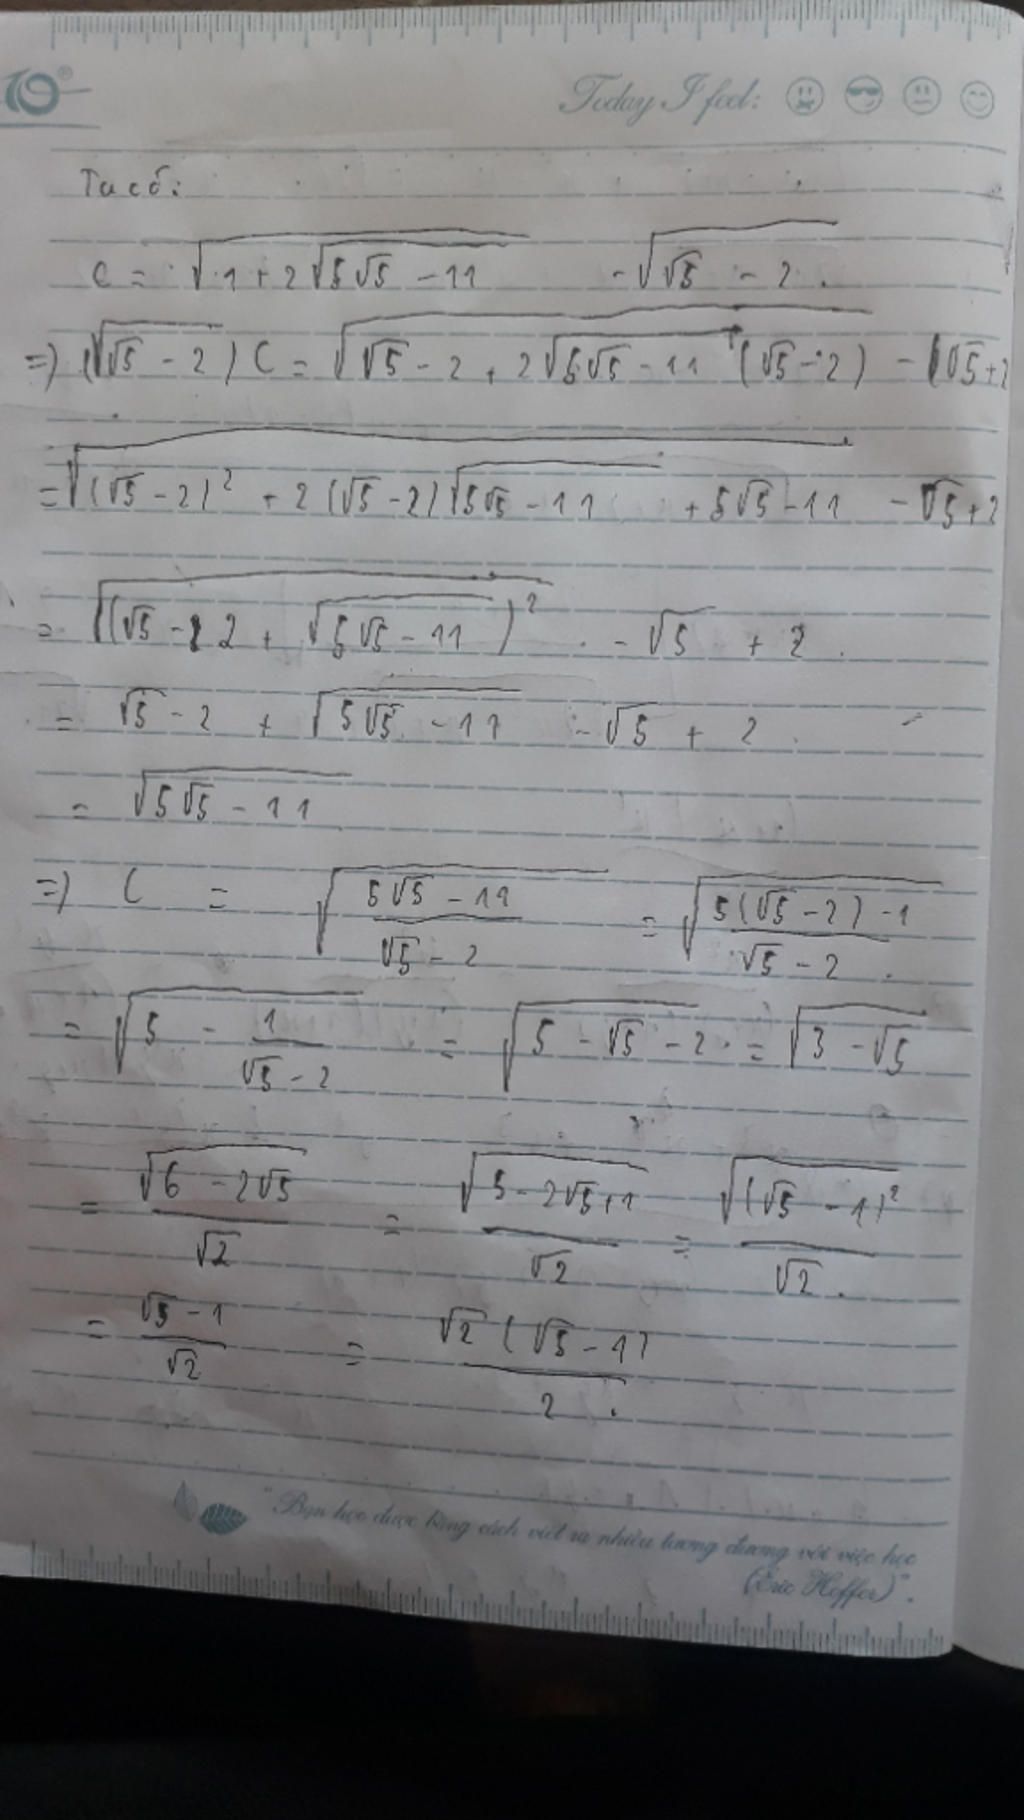 10®
Today I feel:
Ta có:
C = √(1 + 2√(5√5 - 11)) - √(√5 - 2) .
=> (√(√5 - 2)) C = √(√5 - 2 + 2√(5√5 - 11) (√5 - 2)) - (√5 + 2
= √((√5 - 2)² + 2(√5 - 2)√(5√5 - 11) + 5√5 - 11) - √5 + 2
= √((√5 - 2 + √(5√5 - 11))²) - √5 + 2 .
= √5 - 2 + √(5√5 - 11) - √5 + 2 .
= √(5√5 - 11)
=> C = √((5√5 - 11)/(√5 - 2)) = √((5(√5 - 2) - 1)/(√5 - 2)) .
= √(5 - 1/(√5 - 2)) = √(5 - √5 - 2) . = √(3 - √5)
= √(6 - 2√5)/√2 = √(5 - 2√5 + 1)/√2 = √((√5 - 1)²)/√2 .
= (√5 - 1)/√2 = √2(√5 - 1)/2 .
"Bạn học được bằng cách viết ra nhiều tương đương với việc học
(Eric Hoffer)".